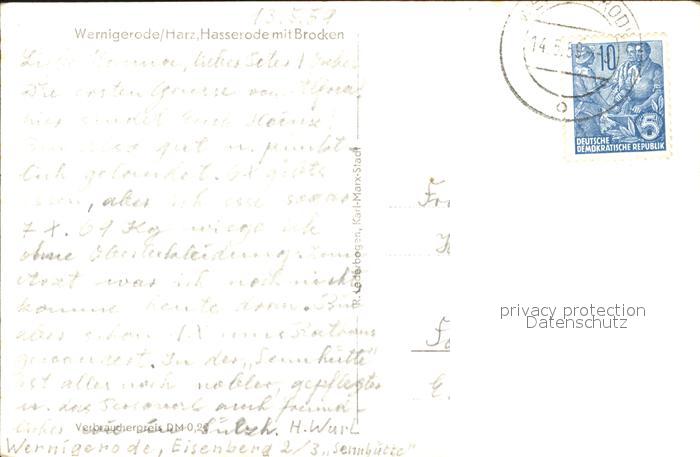 13.5.59
Wernigerode/Harz, Hasserode mit Brocken
Liebe Hanna, lieber
Die ersten Grüsse von
hier sendet Euch Heinz
Bin also gut u. pünkt-
lich gelandet. 6x gibts
Essen, aber ich esse sogar
7x. 61 Kg wiege ich
ohne Oberbekleidung. Zum
Arzt war ich noch nicht
komme heute dran. Bin
aber schon 1x ums Rathaus
gewandert. In der „Sennhütte"
ist alles noch nobler, gepflegter
u. das Personal auch freund-
licher wie in Sülzh. H. Wurl
Verbraucherpreis DM 0,20
Wernigerode, Eisenberg 2/3 „Sennhütte"
K. Lederbogen, Karl-Marx-Stadt
14.5.59
10
5
DEUTSCHE
DEMOKRATISCHE REPUBLIK
privacy protection
Datenschutz